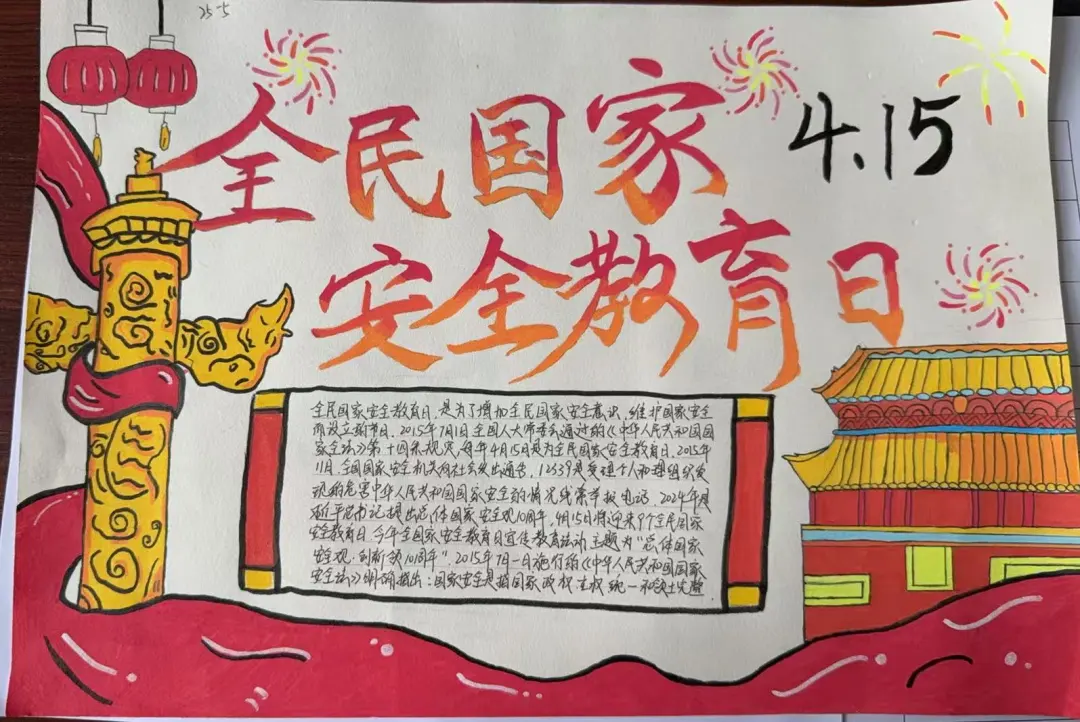 25-5
全民国家
4.15
安全教育日
全民国家安全教育日,是为了增加全民国家安全意识,维护国家安全
而设立的节日。2015年7月1日全国人大常委会通过的《中华人民共和国国
家安法》第十四条规定,每年4月15日是为全民国家安全教育日。2015年
11月,全国国家安全机关向社会发出通告,12339是受理个人和组织发
现的危害中华人民共和国国家安全的情况线索举报电话。2024年是
近平总书记提出总体国家安全观10周年,4月15日将迎来9个全民国家
安全教育日,今年全国家安全教育日宣传教育活动主题为“总体国家
安全观·创新领10周年”2015年7月一日施行的《中华人民共和国国家
安全法》明确指出:国家安全是指国家政权、主权、统一和领土完整